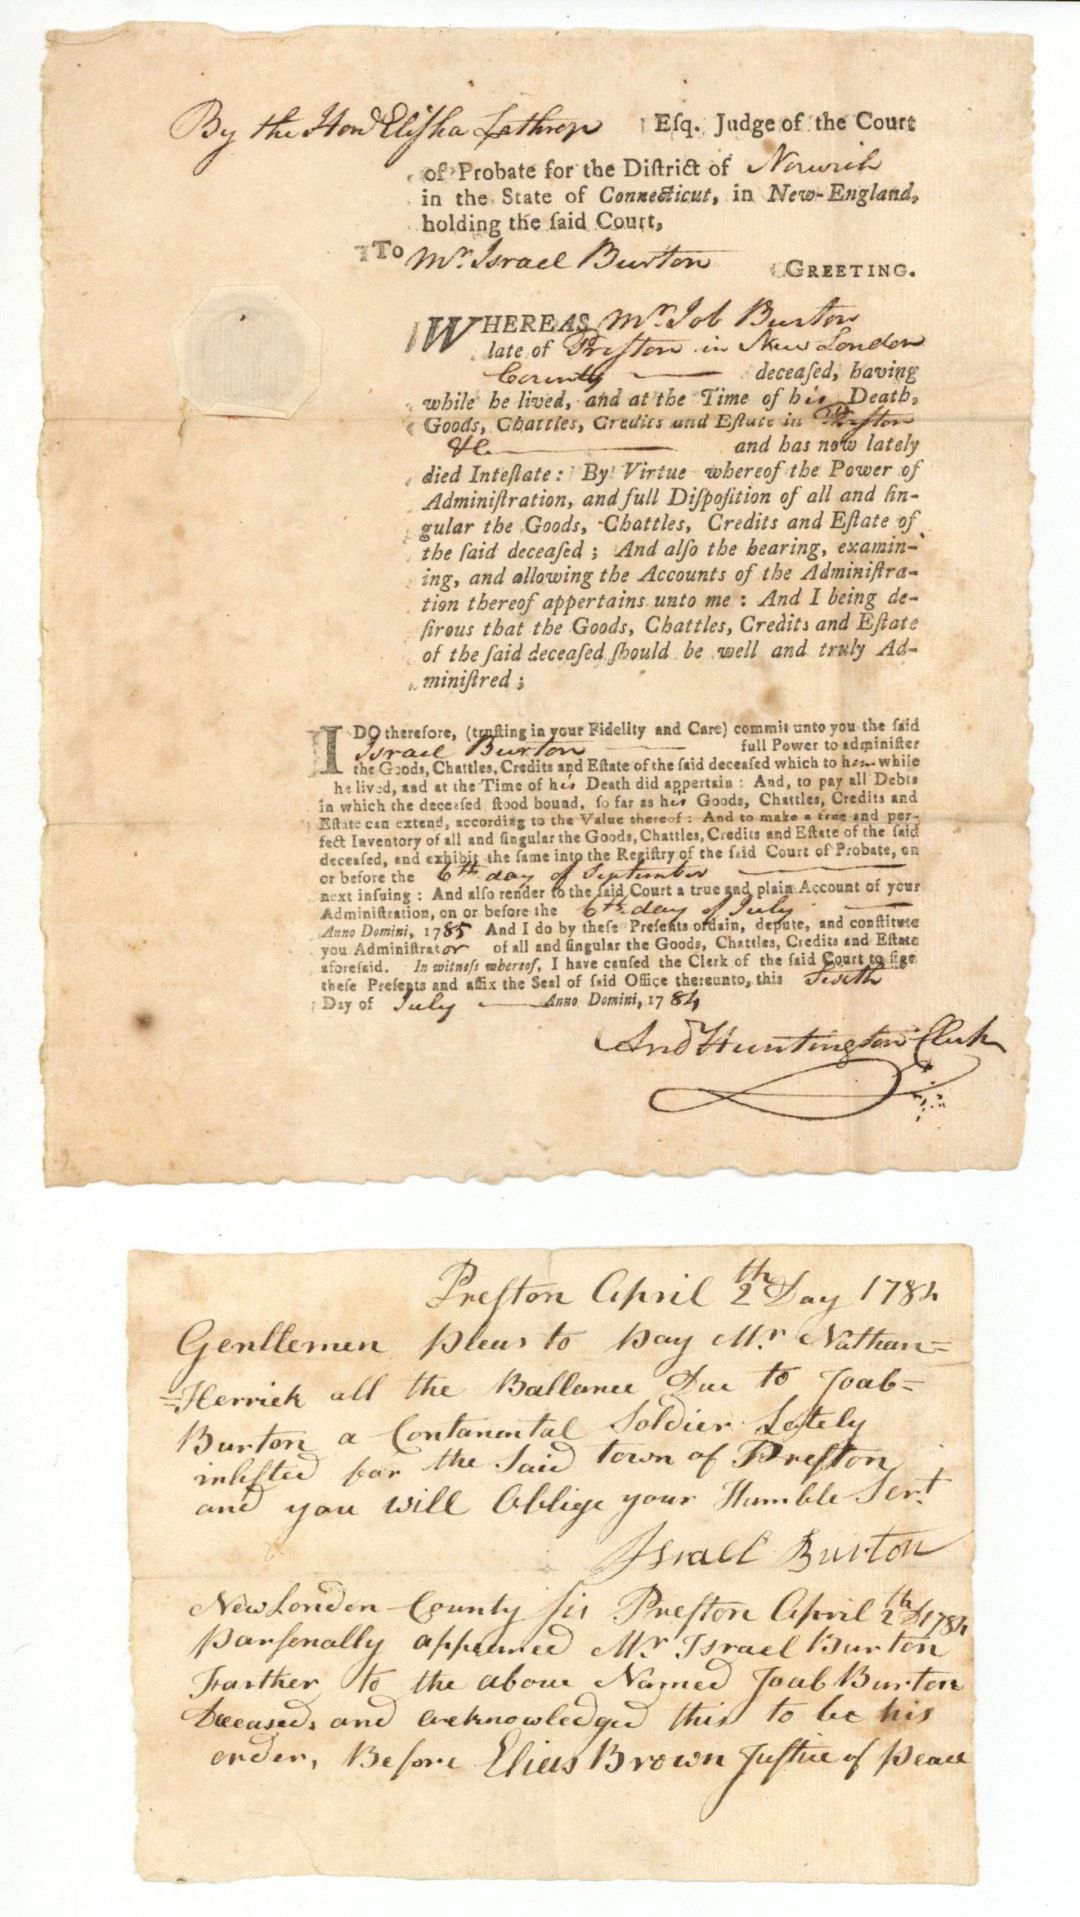 By the Hond Eliſha Lathrop Eſq. Judge of the Court
of Probate for the Diſtrict of Norwich
in the State of Connecticut, in New-England,
holding the ſaid Court,
To Mr. Israel Burton GREETING.
WHEREAS Mr Job Burton
late of Preſton in New London
County deceaſed, having
while he lived, and at the Time of his Death,
Goods, Chattles, Credits and Eſtate in Preſton
&c and has now lately
died Inteſtate: By Virtue whereof the Power of
Adminiſtration, and full Diſpoſition of all and ſin-
gular the Goods, Chattles, Credits and Eſtate of
the ſaid deceaſed; And alſo the hearing, examin-
ing, and allowing the Accounts of the Adminiſtra-
tion thereof appertains unto me: And I being de-
ſirous that the Goods, Chattles, Credits and Eſtate
of the ſaid deceaſed ſhould be well and truly Ad-
miniſtred;
I DO therefore, (truſting in your Fidelity and Care) commit unto you the ſaid
Israel Burton full Power to adminiſter
the Goods, Chattles, Credits and Eſtate of the ſaid deceaſed which to him while
he lived, and at the Time of his Death did appertain: And, to pay all Debts
in which the deceaſed ſtood bound, ſo far as his Goods, Chattles, Credits and
Eſtate can extend, according to the Value thereof: And to make a true and per-
fect Inventory of all and ſingular the Goods, Chattles, Credits and Eſtate of the ſaid
deceaſed, and exhibit the ſame into the Regiſtry of the ſaid Court of Probate, on
or before the 6th day of September
next inſuing: And alſo render to the ſaid Court a true and plain Account of your
Adminiſtration, on or before the 6th day of July
Anno Domini, 1785 And I do by theſe Preſents ordain, depute, and conſtitute
you Adminiſtrator of all and ſingular the Goods, Chattles, Credits and Eſtate
aforeſaid. In witneſs whereof, I have cauſed the Clerk of the ſaid Court to ſign
theſe Preſents and affix the Seal of ſaid Office thereunto, this Sixth
Day of July Anno Domini, 1784
And Huntington Clerk
Preſton April 2th Day 1784
Genllemen pleas to pay Mr Nathan=
=Herrick all the Ballance Due to Joab=
Burton a Contanental Soldier Lately
inliſted for the Said town of Preſton
and you will Oblige your Humble Sert
Israel Burton
New London County ſis Preſton April 2th D 1784
parſonally appeared Mr Israel Burton
Farther to the above Named Joab Burton
Deceased, and acknowledged this to be his
order, Before Elias Brown Juſtice of peace